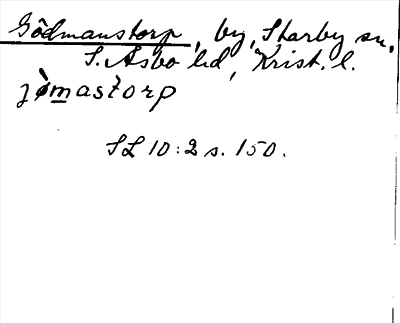 Gödmanstorp, by, Starby sn,
S. Åsbo hd, Krist. l.
jø̀mastorp
SL 10:2 s. 150.